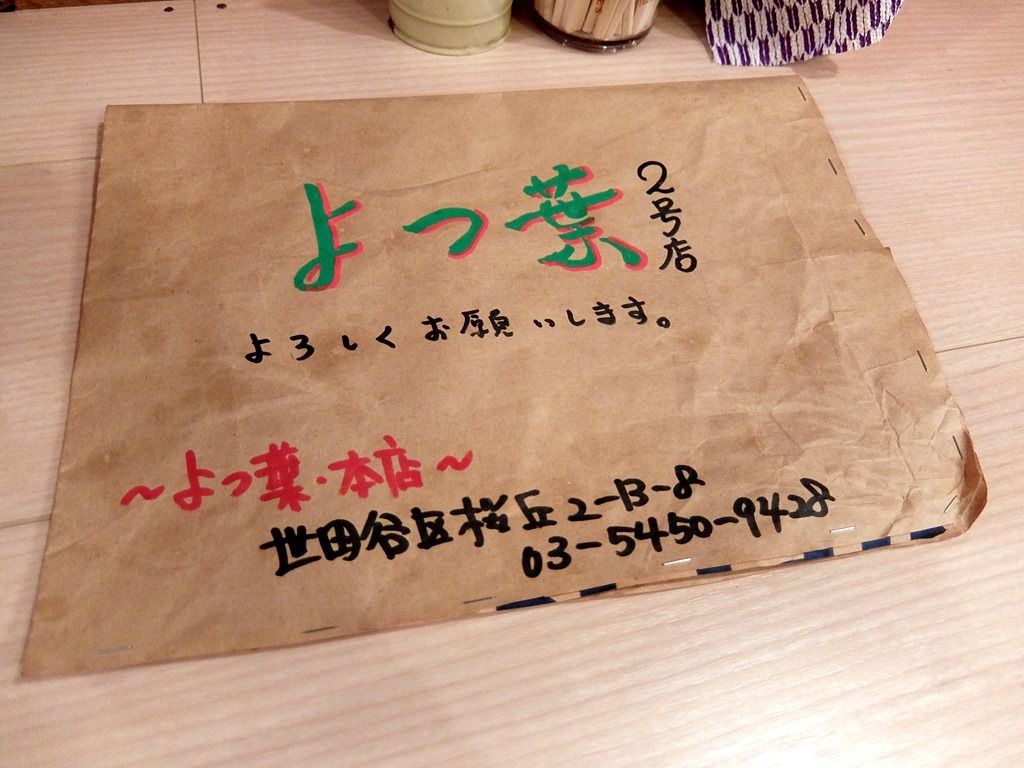 よつ葉
2号店
よろしくお願いします。
～よつ葉・本店～
世田谷区桜丘2-13-8
03-5450-9428